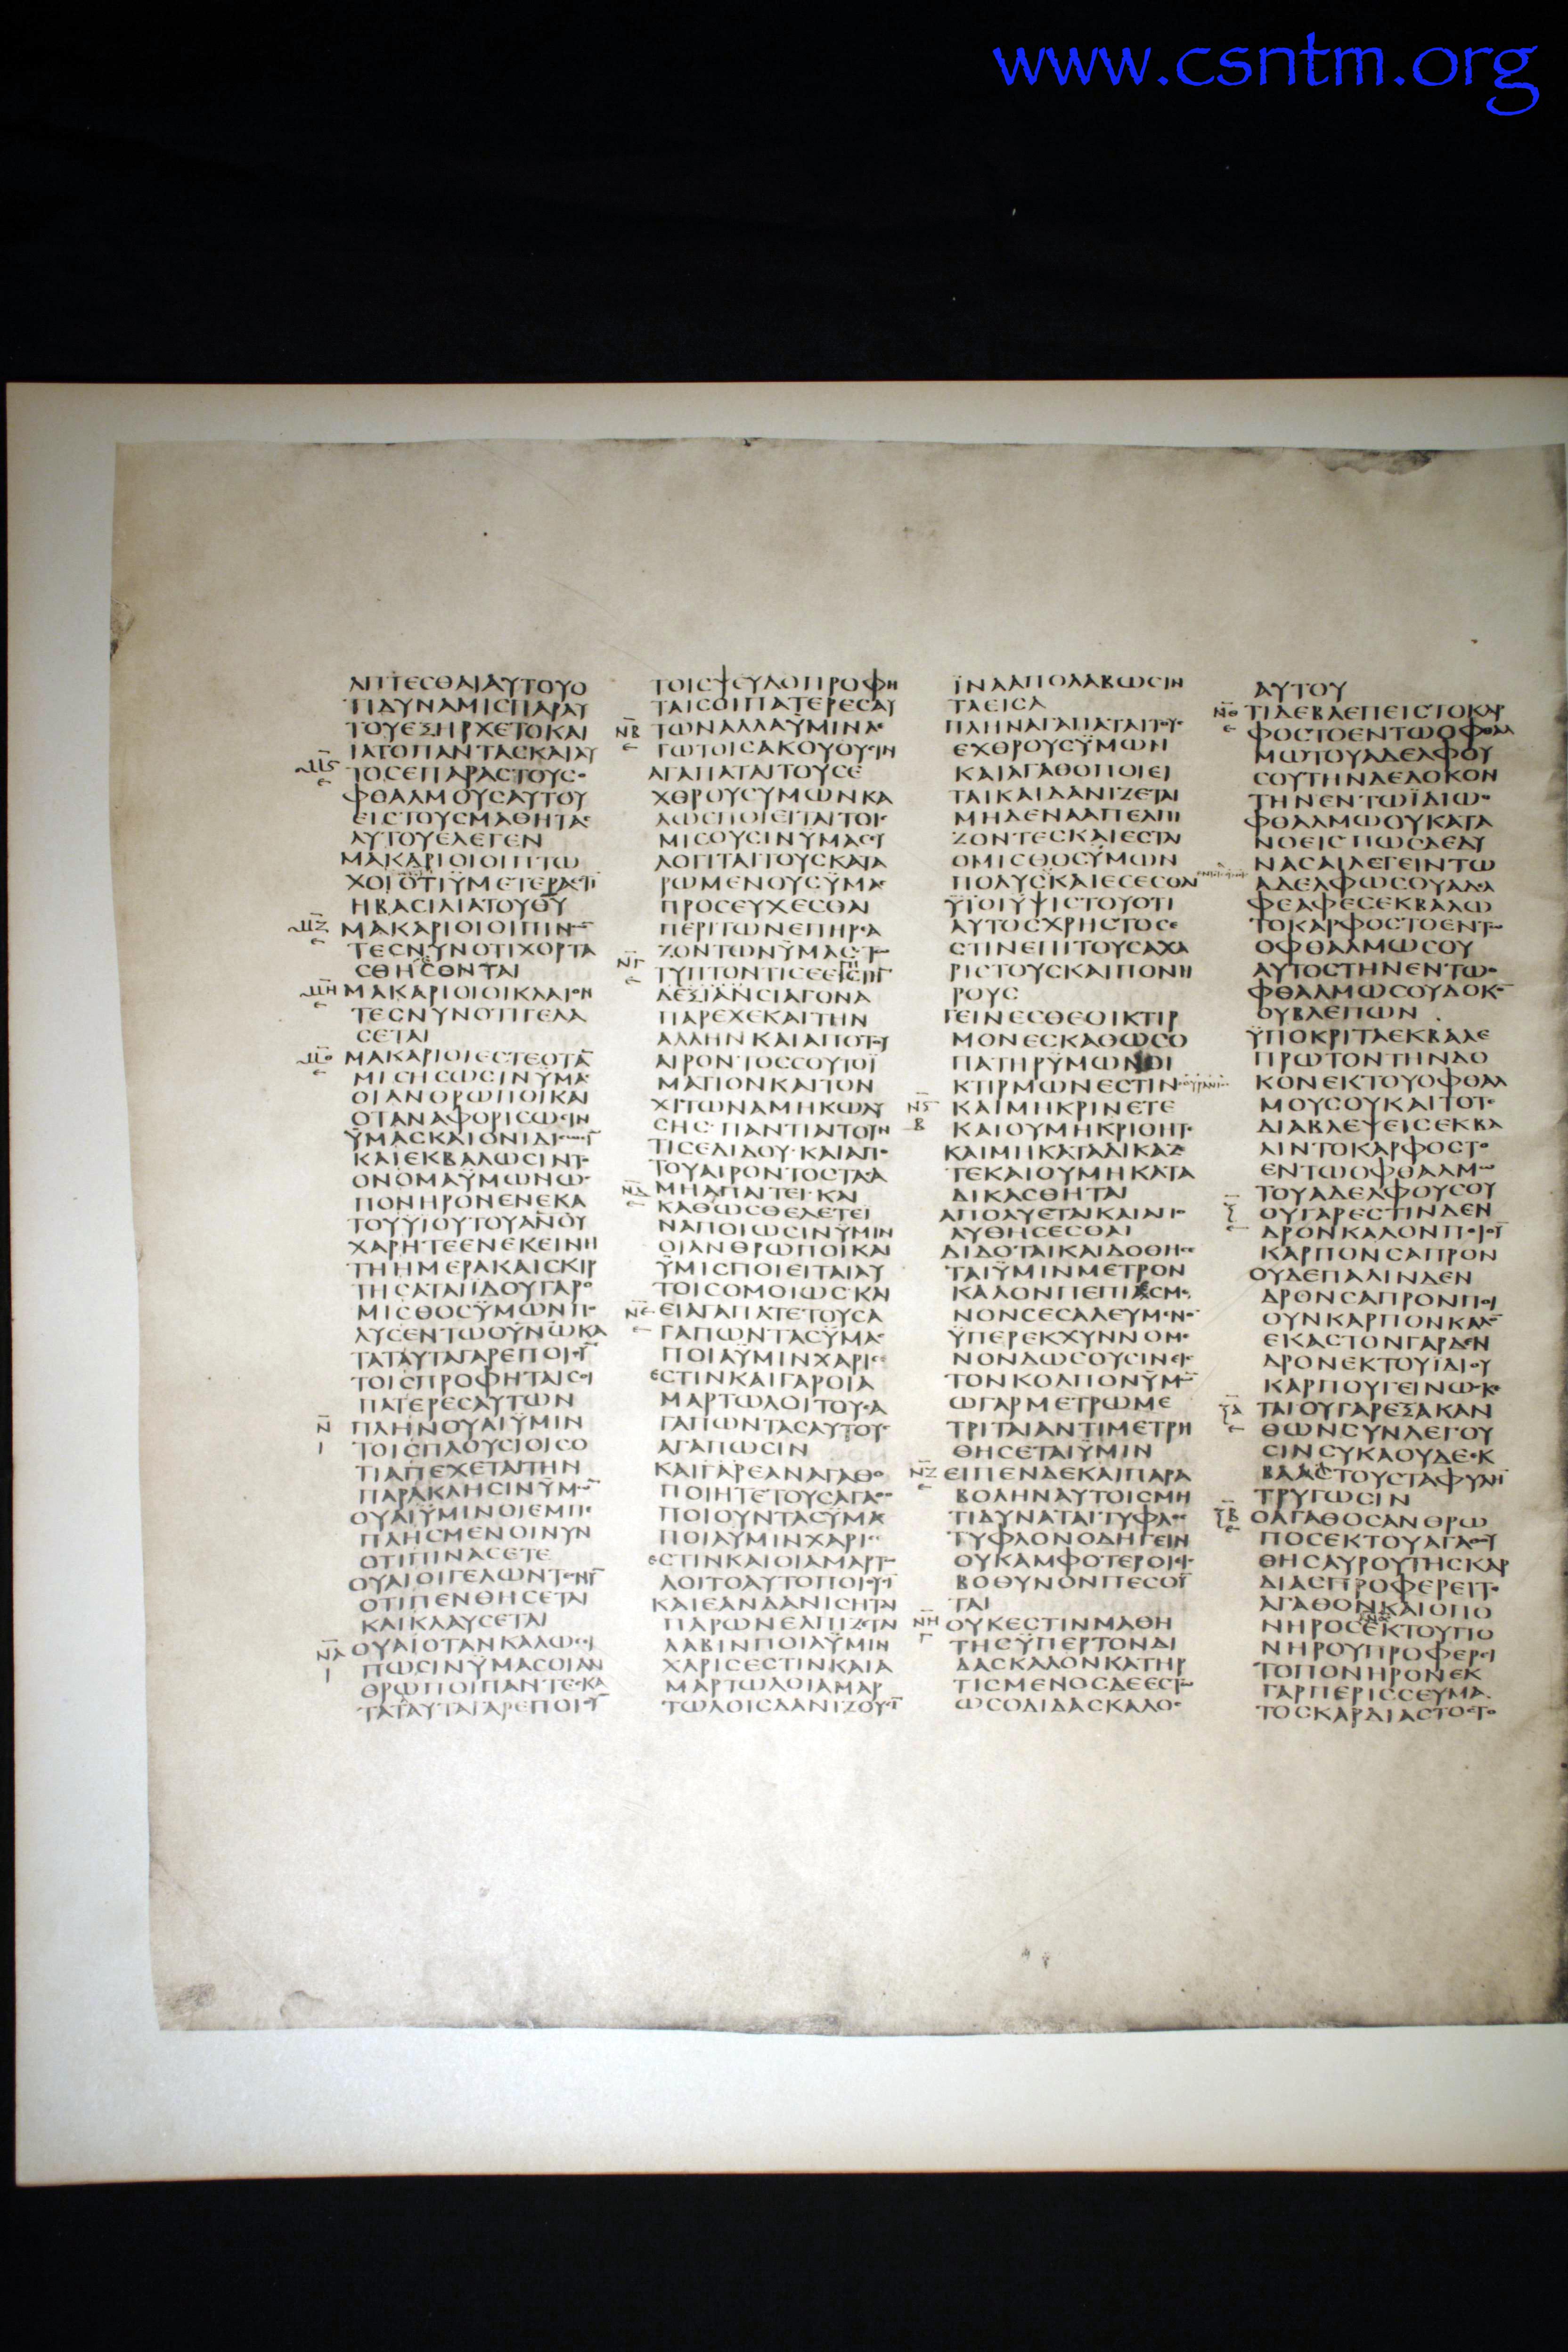 www.csntm.org
ΑΠΤΕСΘΑΙΑΥΤΟΥΟ
ΤΙΔΥΝΑΜΙСΠΑΡΑΥ
ΤΟΥΕΞΗΡΧΕΤΟΚΑΙ
ΙΑΤΟΠΑΝΤΑСΚΑΙΑΥ
ΤΟСΕΠΑΡΑСΤΟΥСΟ
ΦΘΑΛΜΟΥСΑΥΤΟΥ
ΕΙСΤΟΥСΜΑΘΗΤΑС
ΑΥΤΟΥΕΛΕΓΕΝ
ΜΑΚΑΡΙΟΙΟΙΠΤΩ
ΧΟΙΟΤΙΫΜΕΤΕΡΑΕΤΙ
ΗΒΑСΙΛΙΑΤΟΥΘΥ
ΜΑΚΑΡΙΟΙΟΙΠΙΝΩ
ΤΕСΝΥΝΟΤΙΧΟΡΤΑ
СΘΗСΟΝΤΑΙ
ΜΑΚΑΡΙΟΙΟΙΚΛΑΙΟΝ
ΤΕСΝΥΝΟΤΙΓΕΛΑ
СΕΤΑΙ
ΜΑΚΑΡΙΟΙΕСΤΕΟΤΑ̅
ΜΙСΗСΩСΙΝΫΜΑС
ΟΙΑΝΘΡΩΠΟΙΚΑΙ
ΟΤΑΝΑΦΟΡΙСΩСΙΝ
ΫΜΑСΚΑΙΟΝΙΔΙСΩСΙ̅
ΚΑΙΕΚΒΑΛΩСΙΝΤΟ
ΟΝΟΜΑΫΜΩΝΩС
ΠΟΝΗΡΟΝΕΝΕΚΑ
ΤΟΥΫΙΟΥΤΟΥΑΝΟΥ
ΧΑΡΗΤΕΕΝΕΚΕΙΝΗ
ΤΗΗΜΕΡΑΚΑΙСΚΙΡ
ΤΗСΑΤΑΙΪΔΟΥΓΑΡΟ
ΜΙСΘΟСΫΜΩΝΠΟ
ΛΥСΕΝΤΩΟΥΝΩΚΑ
ΤΑΤΑΥΤΑΓΑΡΕΠΟΙΟΥ̅
ΤΟΙСΠΡΟΦΗΤΑΙСΟΙ
ΠΑΤΕΡΕСΑΥΤΩΝ
ΠΛΗΝΟΥΑΙΫΜΙΝ
ΤΟΙСΠΛΟΥСΙΟΙСΟ
ΤΙΑΠΕΧΕΤΑΙΤΗΝ
ΠΑΡΑΚΛΗСΙΝΫΜΩ̅
ΟΥΑΙΫΜΙΝΟΙΕΜΠΕ
ΠΛΗСΜΕΝΟΙΝΥΝ
ΟΤΙΠΙΝΑСΕΤΕ
ΟΥΑΙΟΙΓΕΛΩΝΤΕСΝΥ̅
ΟΤΙΠΕΝΘΗСΕΤΑΙ
ΚΑΙΚΛΑΥСΕΤΑΙ
ΟΥΑΙΟΤΑΝΚΑΛΩСΕΙ
ΠΩСΙΝΫΜΑСΟΙΑΝ
ΘΡΩΠΟΙΠΑΝΤΕСΚΑ
ΤΑΤΑΥΤΑΓΑΡΕΠΟΙΟΥ̅
ΤΟΙСΨΕΥΔΟΠΡΟΦΗ
ΤΑΙСΟΙΠΑΤΕΡΕСΑΥ
ΤΩΝΑΛΛΑΫΜΙΝΛΕ
ΓΩΤΟΙСΑΚΟΥΟΥСΙΝ
ΑΓΑΠΑΤΑΙΤΟΥСΕ
ΧΘΡΟΥСΥΜΩΝΚΑ
ΛΩСΠΟΙΕΙΤΑΙΤΟΙС
ΜΙСΟΥСΙΝΫΜΑСΕΥ
ΛΟΓΙΤΑΙΤΟΥСΚΑΤΑ
ΡΩΜΕΝΟΥСΫΜΑС
ΠΡΟСΕΥΧΕСΘΑΙ
ΠΕΡΙΤΩΝΕΠΗΡΕΑ
ΖΟΝΤΩΝΫΜΑСΤΩ
ΤΥΠΤΟΝΤΙСΕΕΙСΤΗ̅
ΔΕΞΙΑΝСΙΑΓΟΝΑ
ΠΑΡΕΧΕΚΑΙΤΗΝ
ΑΛΛΗΝΚΑΙΑΠΟΤΟΥ
ΑΙΡΟΝΤΟССΟΥΤΟΪ
ΜΑΤΙΟΝΚΑΙΤΟΝ
ΧΙΤΩΝΑΜΗΚΩΛΥ
СΗС·ΠΑΝΤΙΑΙΤΟΥΝ
ΤΙСΕΔΙΔΟΥ·ΚΑΙΑΠΟ
ΤΟΥΑΙΡΟΝΤΟСΤΑСΑ
ΜΗΑΠΑΙΤΕΙ·ΚΑΙ
ΚΑΘΩСΘΕΛΕΤΕΙ
ΝΑΠΟΙΩСΙΝΫΜΙΝ
ΟΙΑΝΘΡΩΠΟΙΚΑΙ
ΫΜΙСΠΟΙΕΙΤΑΙΑΥ
ΤΟΙСΟΜΟΙΩС·ΚΑΙ
ΕΙΑΓΑΠΑΤΕΤΟΥСΑ
ΓΑΠΩΝΤΑСΫΜΑС
ΠΟΙΑΫΜΙΝΧΑΡΙС
ΕСΤΙΝΚΑΙΓΑΡΟΙΑ
ΜΑΡΤΩΛΟΙΤΟΥСΑ
ΓΑΠΩΝΤΑСΑΥΤΟΥС
ΑΓΑΠΩСΙΝ
ΚΑΙΓΑΡΕΑΝΑΓΑΘΟ
ΠΟΙΗΤΕΤΟΥСΑΓΑΘΟ
ΠΟΙΟΥΝΤΑСΫΜΑС
ΠΟΙΑΫΜΙΝΧΑΡΙС
ΕСΤΙΝΚΑΙΟΙΑΜΑΡΤΩ
ΛΟΙΤΟΑΥΤΟΠΟΙΟΥСΙ̅
ΚΑΙΕΑΝΔΑΝΙСΗΤΑΙ
ΠΑΡΩΝΕΛΠΙΖΕΤΑΙ
ΛΑΒΙΝΠΟΙΑΫΜΙΝ
ΧΑΡΙСΕСΤΙΝΚΑΙΑ
ΜΑΡΤΩΛΟΙΑΜΑΡ
ΤΩΛΟΙСΔΑΝΙΖΟΥСΙ̅
ΪΝΑΑΠΟΛΑΒΩСΙΝ
ΤΑΕΙСΑ
ΠΛΗΝΑΓΑΠΑΤΑΙΤΟΥС
ΕΧΘΡΟΥСΫΜΩΝ
ΚΑΙΑΓΑΘΟΠΟΙΕΙ
ΤΑΙΚΑΙΔΑΝΙΖΕΤΑΙ
ΜΗΔΕΝΑΑΠΕΛΠΙ
ΖΟΝΤΕСΚΑΙΕСΤΑΙ
ΟΜΙСΘΟСΫΜΩΝ
ΠΟΛΥСΚΑΙΕСΕСΘΑΙ
ΫΙΟΙΫΨΙСΤΟΥΟΤΙ
ΑΥΤΟСΧΡΗСΤΟСΕ
СΤΙΝΕΠΙΤΟΥСΑΧΑ
ΡΙСΤΟΥСΚΑΙΠΟΝΗ
ΡΟΥС
ΓΕΙΝΕСΘΕΟΙΚΤΙΡ
ΜΟΝΕСΚΑΘΩСΟ
ΠΑΤΗΡΫΜΩΝΟΙ
ΚΤΙΡΜΩΝΕСΤΙΝ
ΚΑΙΜΗΚΡΙΝΕΤΕ
ΚΑΙΟΥΜΗΚΡΙΘΗΤΕ
ΚΑΙΜΗΚΑΤΑΔΙΚΑΖΕ
ΤΕΚΑΙΟΥΜΗΚΑΤΑ
ΔΙΚΑСΘΗΤΑΙ
ΑΠΟΛΥΕΤΑΙΚΑΙΑΠΟ
ΛΥΘΗСΕСΘΑΙ
ΔΙΔΟΤΑΙΚΑΙΔΟΘΗСΕ
ΤΑΙΫΜΙΝΜΕΤΡΟΝ
ΚΑΛΟΝΠΕΠΙΕСΜΕ
ΝΟΝСΕСΑΛΕΥΜΕΝΟ
ΫΠΕΡΕΚΧΥΝΝΟΜΕ
ΝΟΝΔΩСΟΥСΙΝΕΙС
ΤΟΝΚΟΛΠΟΝΫΜΩ̅
ΩΓΑΡΜΕΤΡΩΜΕ
ΤΡΙΤΑΙΑΝΤΙΜΕΤΡΗ
ΘΗСΕΤΑΙΫΜΙΝ
ΕΙΠΕΝΔΕΚΑΙΠΑΡΑ
ΒΟΛΗΝΑΥΤΟΙСΜΗ
ΤΙΔΥΝΑΤΑΙΤΥΦΛΟС
ΤΥΦΛΟΝΟΔΗΓΕΙΝ
ΟΥΚΑΜΦΟΤΕΡΟΙΕΙС
ΒΟΘΥΝΟΝΠΕСΟΥ̅
ΤΑΙ
ΟΥΚΕСΤΙΝΜΑΘΗ
ΤΗСΫΠΕΡΤΟΝΔΙ
ΔΑСΚΑΛΟΝΚΑΤΗΡ
ΤΙСΜΕΝΟСΔΕΕСΤΩ
ΩСΟΔΙΔΑСΚΑΛΟС
ΑΥΤΟΥ
ΤΙΔΕΒΛΕΠΕΙСΤΟΚΑΡ
ΦΟСΤΟΕΝΤΩΟΦΘΑΛ
ΜΩΤΟΥΑΔΕΛΦΟΥ
СΟΥΤΗΝΔΕΔΟΚΟΝ
ΤΗΝΕΝΤΩΪΔΙΩΟ
ΦΘΑΛΜΩΟΥΚΑΤΑ
ΝΟΕΙСΠΩСΔΕΔΥ
ΝΑСΑΙΛΕΓΕΙΝΤΩ
ΑΔΕΛΦΩСΟΥΑΔΕΛ
ΦΕΑΦΕСΕΚΒΑΛΩ
ΤΟΚΑΡΦΟСΤΟΕΝΤΩ
ΟΦΘΑΛΜΩСΟΥ
ΑΥΤΟСΤΗΝΕΝΤΩΟ
ΦΘΑΛΜΩСΟΥΔΟΚΟ̅
ΟΥΒΛΕΠΩΝ
ΫΠΟΚΡΙΤΑΕΚΒΑΛΕ
ΠΡΩΤΟΝΤΗΝΔΟ
ΚΟΝΕΚΤΟΥΟΦΘΑΛ
ΜΟΥСΟΥΚΑΙΤΟΤΕ
ΔΙΑΒΛΕΨΕΙСΕΚΒΑ
ΛΙΝΤΟΚΑΡΦΟСΤΟ
ΕΝΤΩΟΦΘΑΛΜΩ
ΤΟΥΑΔΕΛΦΟΥСΟΥ
ΟΥΓΑΡΕСΤΙΝΔΕΝ
ΔΡΟΝΚΑΛΟΝΠΟΙΟΥ̅
ΚΑΡΠΟΝСΑΠΡΟΝ
ΟΥΔΕΠΑΛΙΝΔΕΝ
ΔΡΟΝСΑΠΡΟΝΠΟΙ
ΟΥΝΚΑΡΠΟΝΚΑΛΟ̅
ΕΚΑСΤΟΝΓΑΡΔΕΝ
ΔΡΟΝΕΚΤΟΥΪΔΙΟΥ
ΚΑΡΠΟΥΓΕΙΝΩСΚΕ
ΤΑΙΟΥΓΑΡΕΞΑΚΑΝ
ΘΩΝСΥΝΛΕΓΟΥ
СΙΝСΥΚΑΟΥΔΕΕΚ
ΒΑΛΤΟΥСΤΑΦΥΛΗ̅
ΤΡΥΓΩСΙΝ
ΟΑΓΑΘΟСΑΝΘΡΩ
ΠΟСΕΚΤΟΥΑΓΑΘΟΥ
ΘΗСΑΥΡΟΥΤΗСΚΑΡ
ΔΙΑСΠΡΟΦΕΡΕΙΤΟ
ΑΓΑΘΟΝΚΑΙΟΠΟ
ΝΗΡΟСΕΚΤΟΥΠΟ
ΝΗΡΟΥΠΡΟΦΕΡΕΙ
ΤΟΠΟΝΗΡΟΝΕΚ
ΓΑΡΠΕΡΙССΕΥΜΑ
ΤΟСΚΑΡΔΙΑСΤΟСΤΟ